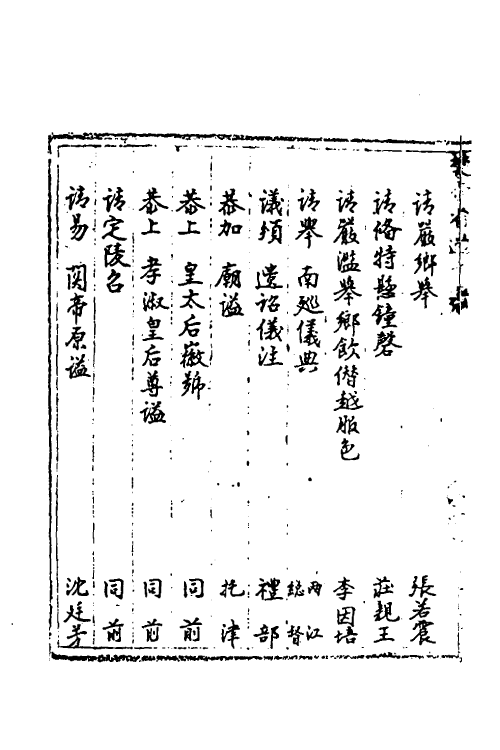 請嚴鄉舉 張若震
請脩特懸鐘磬 莊親王
請嚴濫舉鄉飲僭越服色 李因培
請舉 南廵儀典 兩江總督
議頒 遺詔儀注 禮部
恭加 廟謚 托津
恭上 皇太后徽號 同前
恭上 孝淑皇后尊謚 同前
請定陵名 同前
請易 関帝原謚 沈廷芳